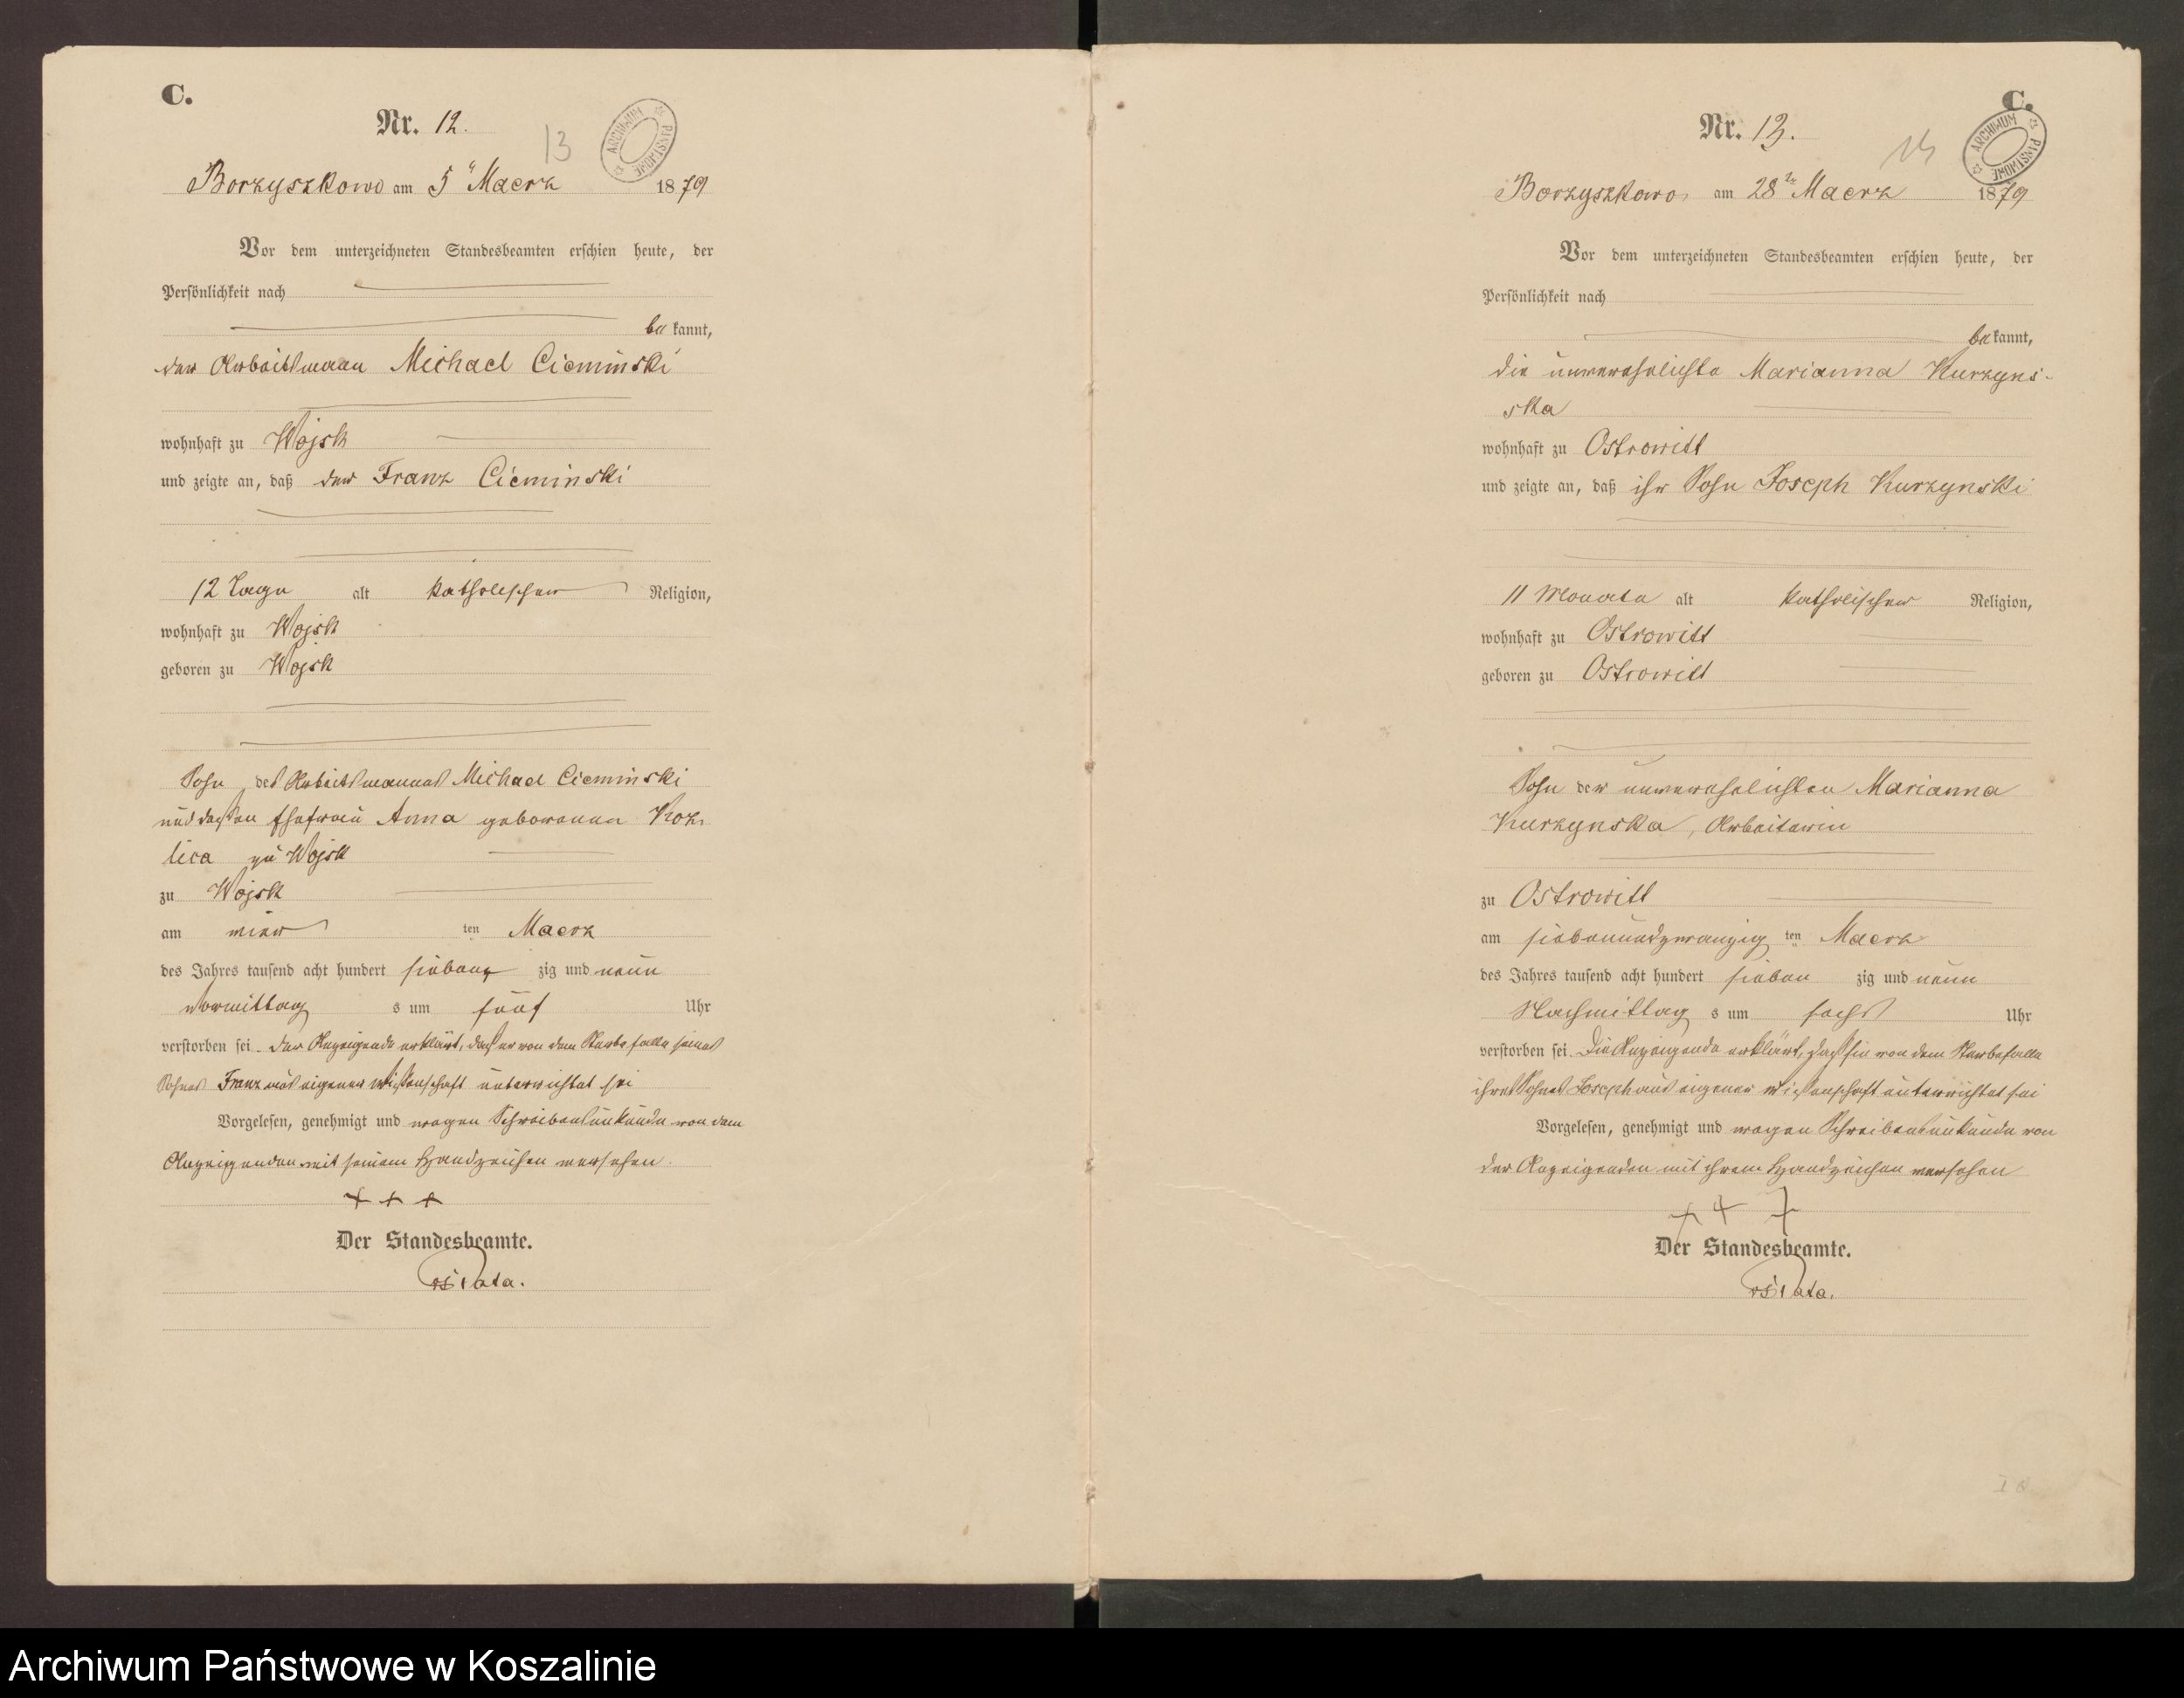 C.
Nr. 12.
13
ARCHIWUM PAŃSTWOWE
Borzyszkowo am 5ᵗ Maerz 1879
Vor dem unterzeichneten Standesbeamten erschien heute, der
Persönlichkeit nach
be kannt,
der Arbeitsmann Michael Cieminski
wohnhaft zu Wojsk
und zeigte an, daß der Franz Cieminski
12 Tage alt katholischer Religion,
wohnhaft zu Wojsk
geboren zu Wojsk
Sohn des Arbeitsmannes Michael Cieminski
und dessen Ehefrau Anna geborenen Koz-
lica zu Wojsk
zu Wojsk
am vier ten Maerz
des Jahres tausend acht hundert siebenzig und neun
vormittag s um fünf Uhr
verstorben sei. Der Anzeigende erklärt, daß er von dem Sterbefalle seines
Sohnes Franz aus eigener Wissenschaft unterrichtet sei
Vorgelesen, genehmigt und wegen Schreibensunkunde von dem
Anzeigenden mit seinem Handzeichen versehen.
+ + +
Der Standesbeamte.
C.
Nr. 13.
ARCHIWUM PAŃSTWOWE
Borzyszkowo am 28ᵗᵉ Maerz 1879
Vor dem unterzeichneten Standesbeamten erschien heute, der
Persönlichkeit nach
be kannt,
die unverehelichte Marianna Kurzyns-
ska
wohnhaft zu Ostrowitt
und zeigte an, daß ihr Sohn Joseph Kurzynski
11 Monate alt katholischer Religion,
wohnhaft zu Ostrowitt
geboren zu Ostrowitt
Sohn der unverehelichten Marianna
Kurzynska, Arbeiterin
zu Ostrowitt
am siebenundzwanzig ten Maerz
des Jahres tausend acht hundert sieben zig und neun
Nachmittag s um sechs Uhr
verstorben sei. Die Anzeigende erklärt, daß sie von dem Sterbefalle
ihres Sohnes Joseph aus eigener Wissenschaft unterrichtet sei
Vorgelesen, genehmigt und wegen Schreibensunkunde von
der Anzeigenden mit ihrem Handzeichen versehen
+ + +
Der Standesbeamte.
Archiwum Państwowe w Koszalinie